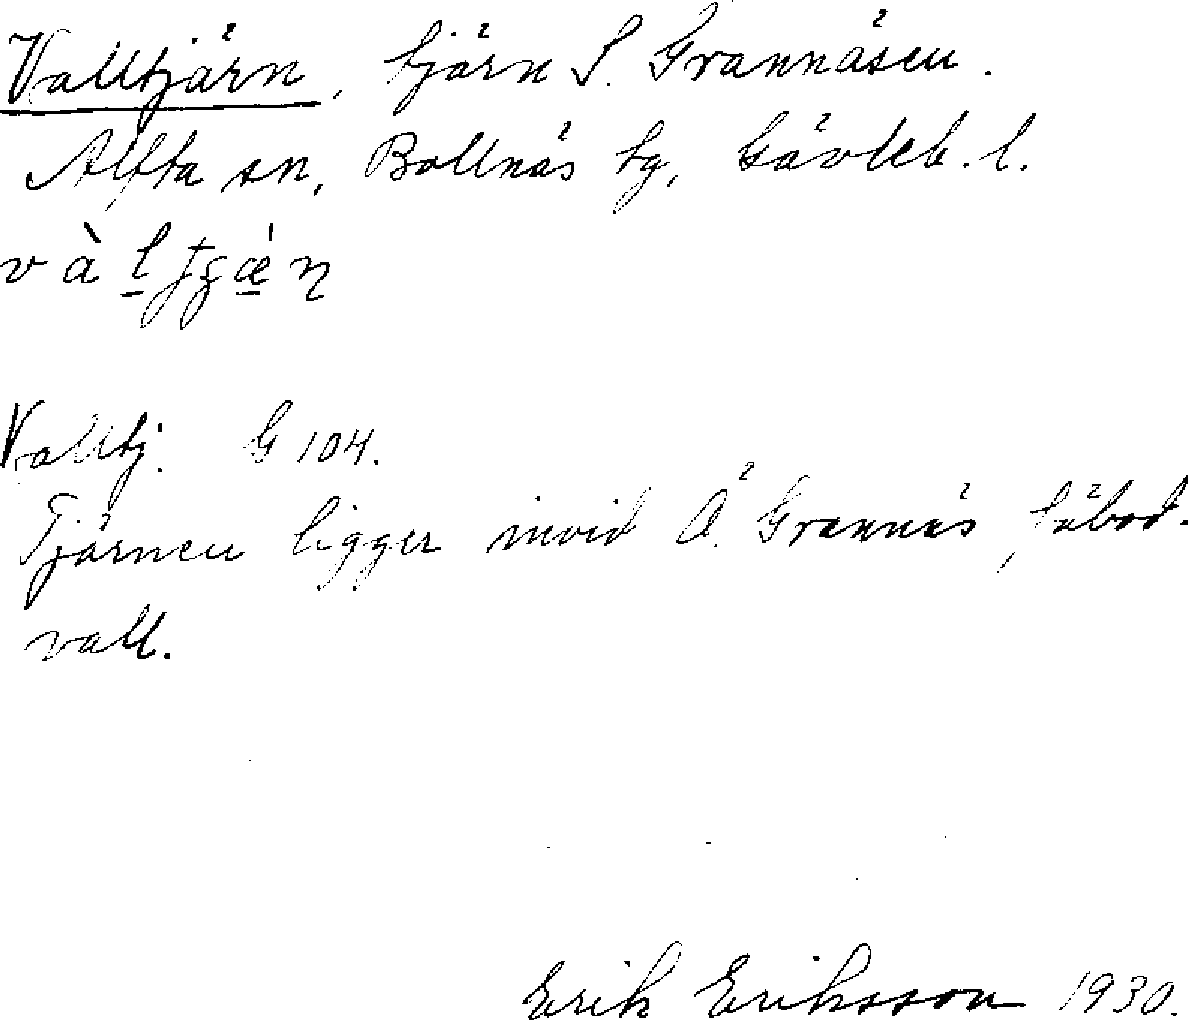 Valltjärn, tjärn S. Grannåsen.
Alfta sn, Bollnäs tg, Gävleb. l.
Valltj. G 104.
Tjärnen ligger invid Ö. Grannås, fäbod-
vall.
Erik Eriksson 1930.